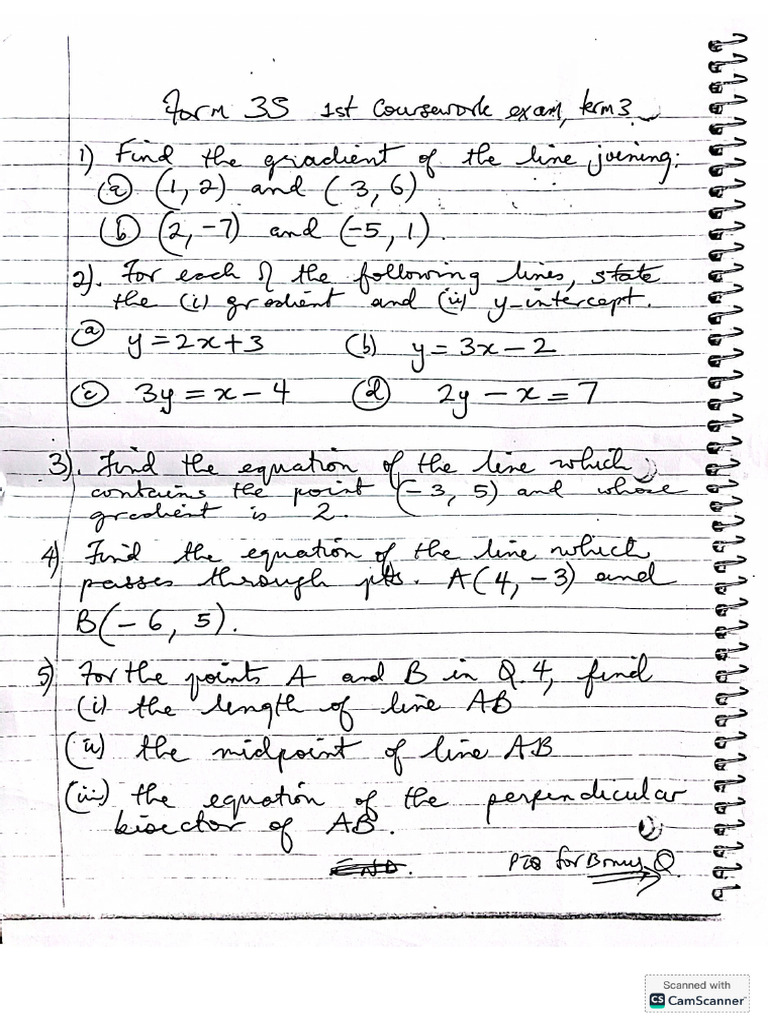 Form 3S 1st Coursework exam, term 3
1) Find the gradient of the line joining:
(a) (1, 2) and (3, 6)
(b) (2, -7) and (-5, 1).
2). For each of the following lines, state
the (i) gradient and (ii) y-intercept.
(a) y = 2x+3 (b) y = 3x - 2
(c) 3y = x - 4 (d) 2y - x = 7
3). Find the equation of the line which
contains the point (-3, 5) and whose
gradient is 2.
4) Find the equation of the line which
passes through pts. A(4, -3) and
B(-6, 5).
5) For the points A and B in Q.4, find
(i) the length of line AB
(ii) the midpoint of line AB
(iii) the equation of the perpendicular
bisector of AB.
END. PTO for Bonus Q
Scanned with
CS CamScanner